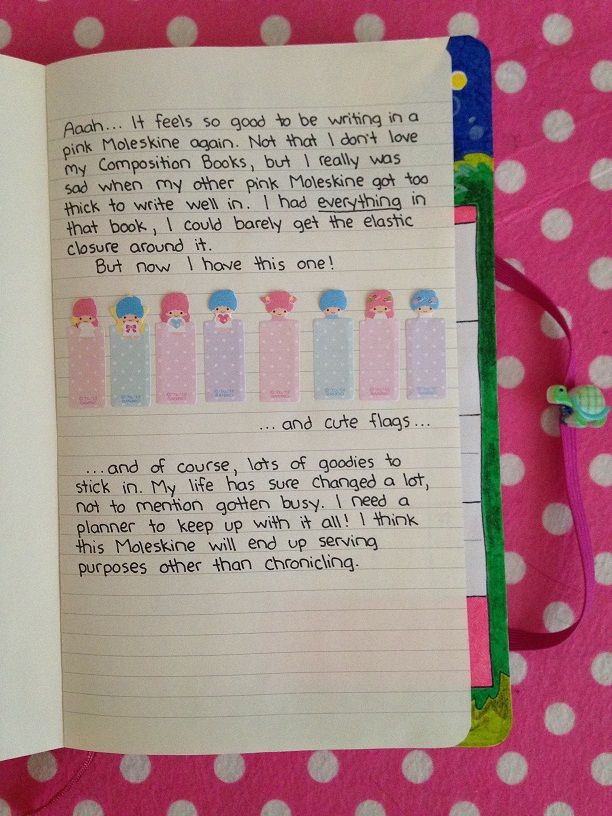 Aaah... It feels so good to be writing in a
pink Moleskine again. Not that I don't love
my Composition Books, but I really was
sad when my other pink Moleskine got too
thick to write well in. I had everything in
that book, I could barely get the elastic
closure around it.
But now I have this one!
...and cute flags...
...and of course, lots of goodies to
stick in. My life has sure changed a lot,
not to mention gotten busy. I need a
planner to keep up with it all! I think
this Moleskine will end up serving
purposes other than chronicling.